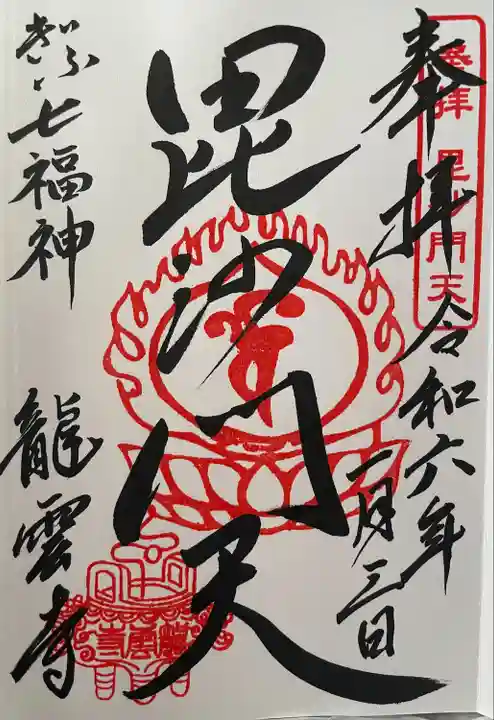 奉拝
令和六年
一月三日
奉拝 毘沙門天
毘沙門天
ぎふ七福神
龍雲寺
龍雲寺